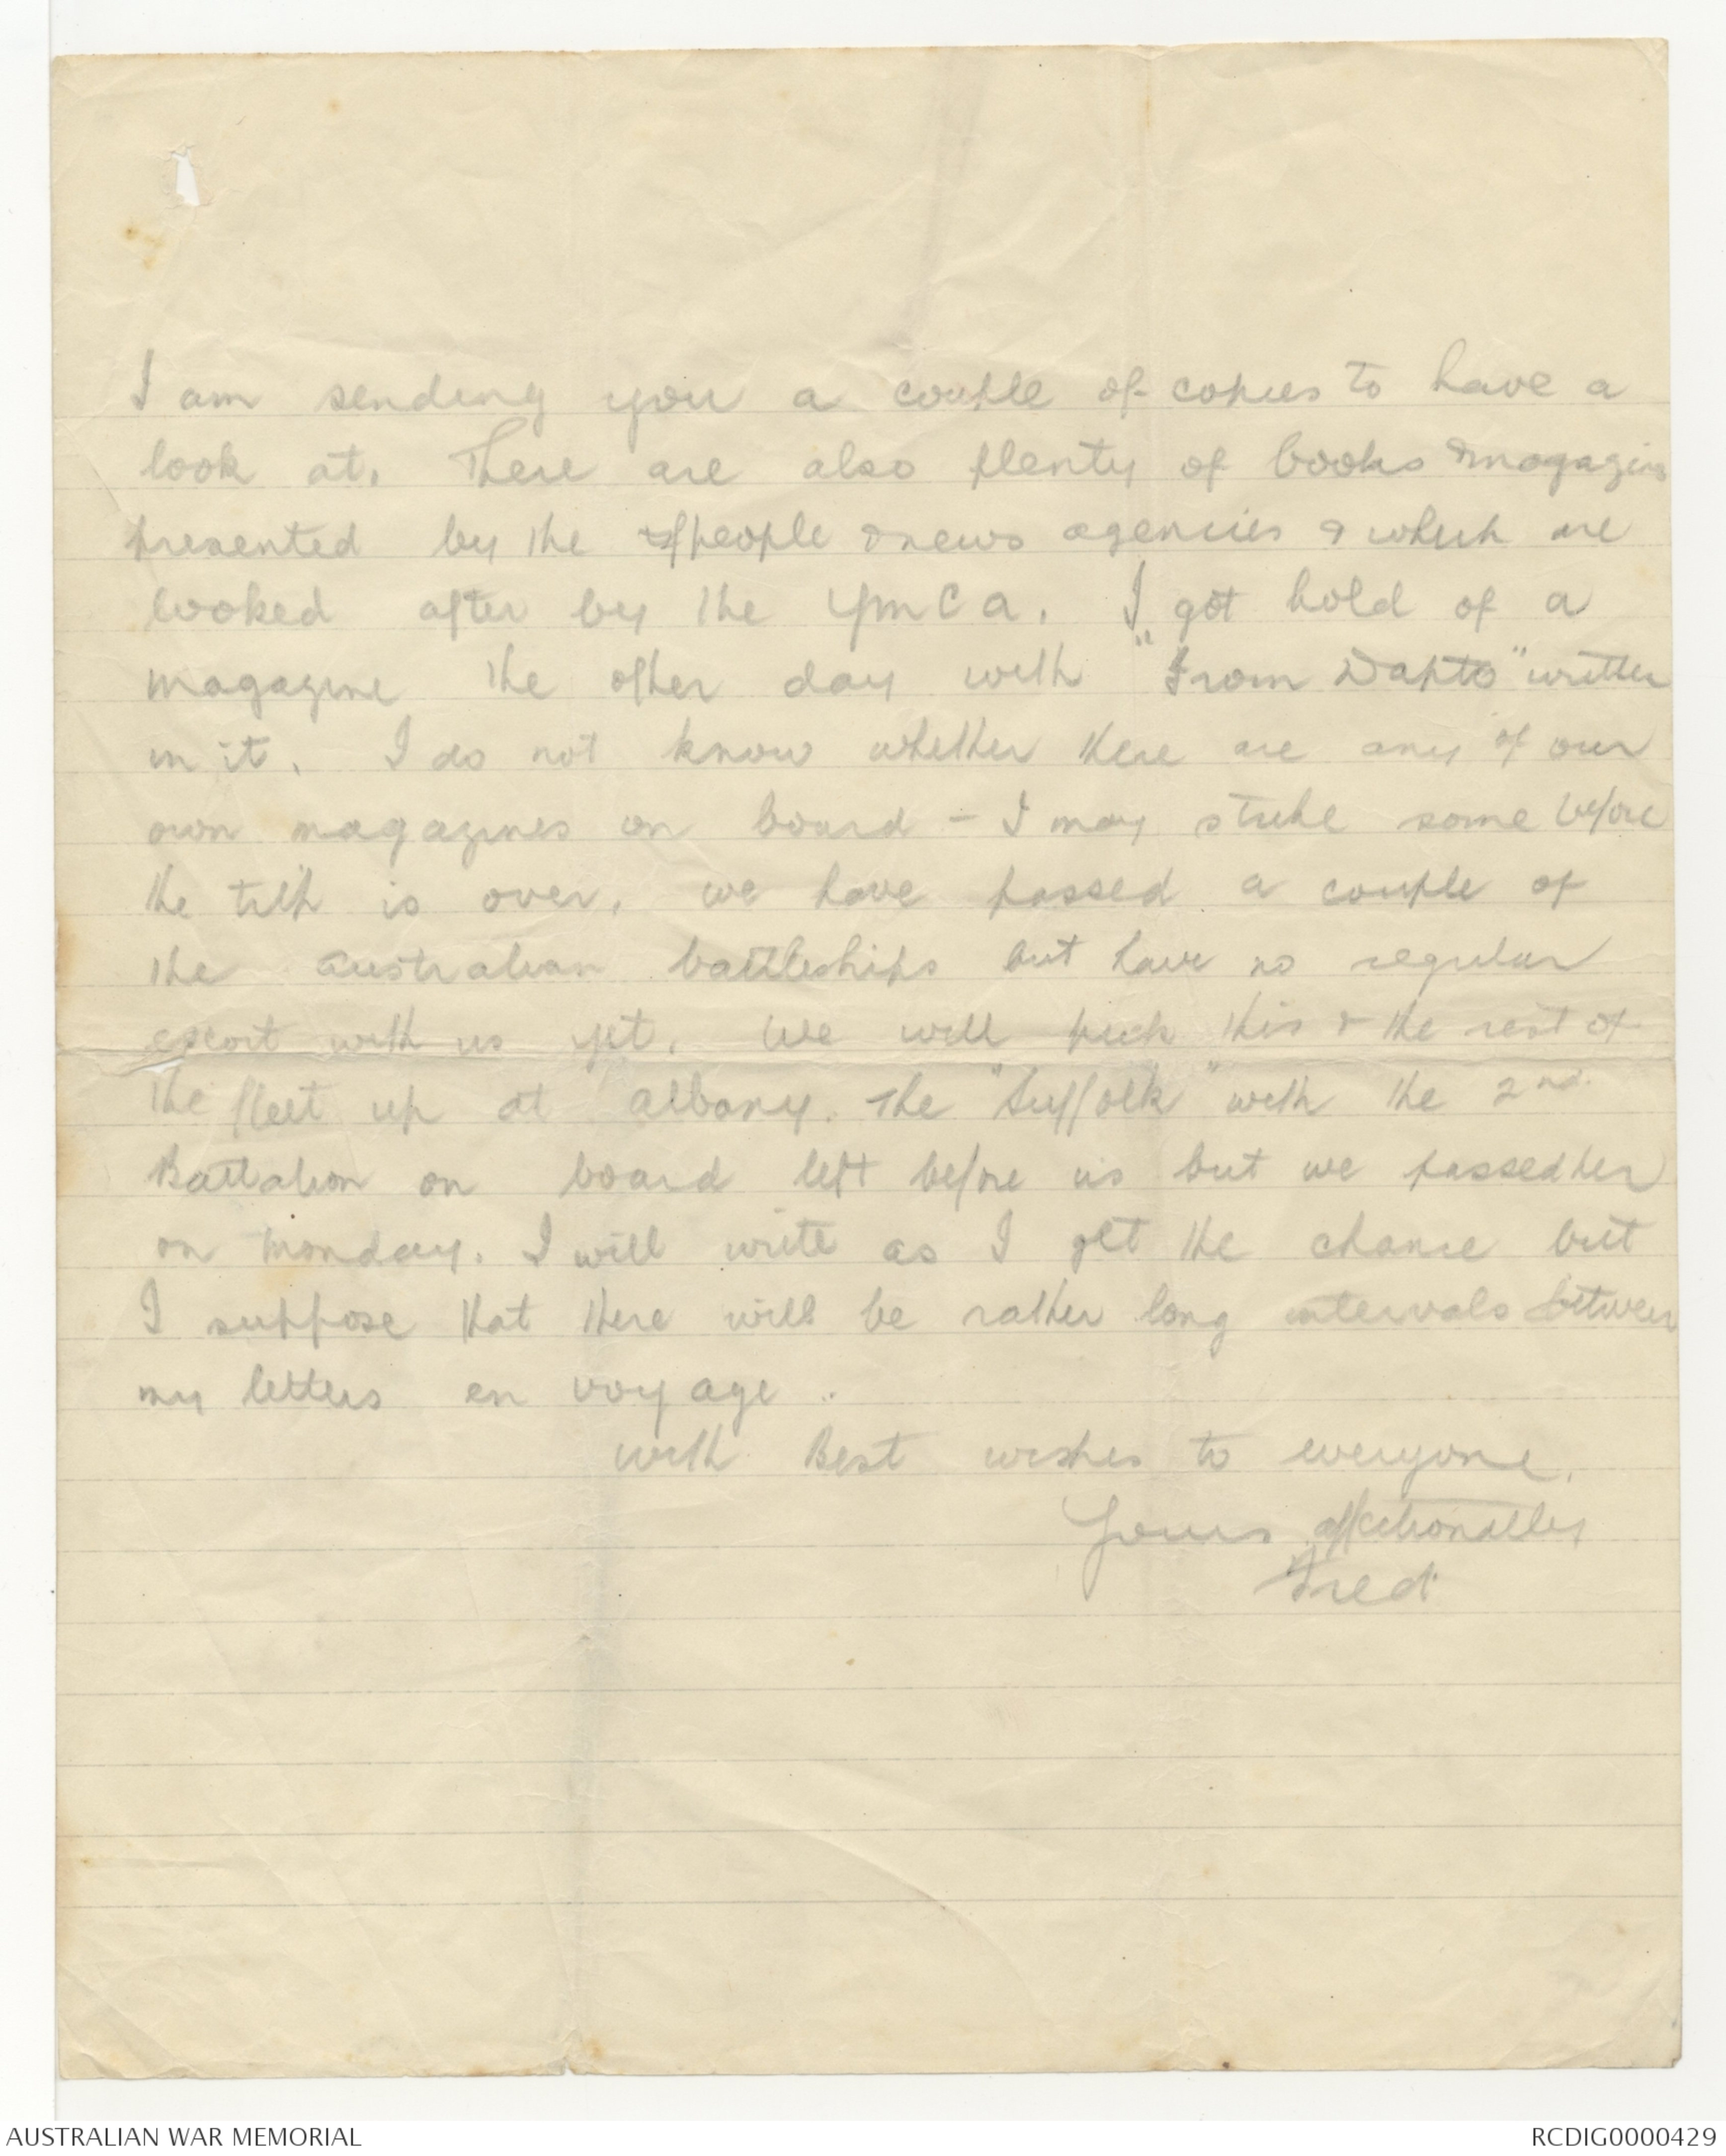 I am sending you a couple of copies to have a
look at. There are also plenty of books & magazines
presented by the people & news agencies & which are
looked after by the YMCA. I got hold of a
magazine the other day with "From Dapto" written
in it. I do not know whether there are any of our
own magazines on board - I may strike some before
the trip is over. We have passed a couple of
the Australian battleships but have no regular
escort with us yet. We will pick this & the rest of
the fleet up at Albany. The "Suffolk" with the 2nd
Battalion on board left before us but we passed her
on Monday. I will write as I get the chance but
I suppose that there will be rather long intervals between
my letters en voyage.
With Best wishes to everyone.
Yours affectionatlly
Fred
AUSTRALIAN WAR MEMORIAL
RCDIG0000429